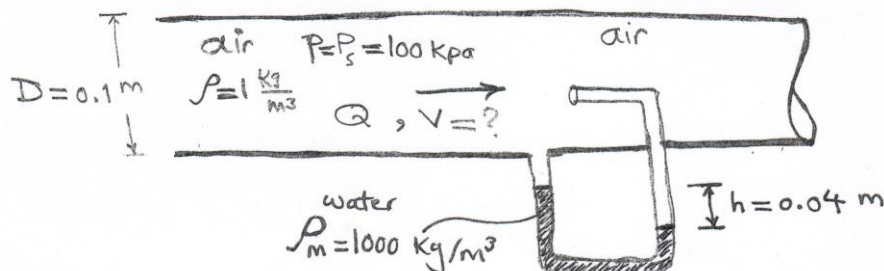 air P=P_s=100 kpa air
D=0.1 m ρ=1 kg/m³
Q, V=?
water
ρ_m=1000 Kg/m³ h=0.04 m